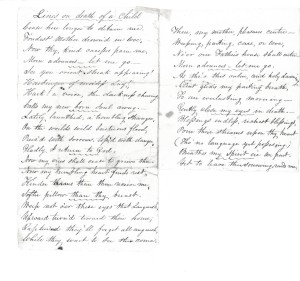 Lines on death of a Child
Cease here longer to detain me,
Fondest Mother drown'd in woe,
Now thy kind caresses pain me,
Morn advances, let me go
See yon orient streak appearing!
Harbinger of endless day;
Hark! a voice, the darkness cheering
Calls my new born soul away.
Lately launched, a trembling stranger,
On the worlds wild boisterous flood,
Pierced with sorrows, toss'd with danger,
Gladly I return to God.
Now my cries shall cease to grieve thee,
Now my trembling heart find rest,
Kinder arms than thine receive me,
Softer pillow than thy breast.
Weep not o'er these eyes that languish,
Upward turned toward their home,
Raptured they'll forget all anguish,
While they wait to see thee come.
There, my mother, pleasures centre
Weeping, parting, care, or woe,
Ne'er our Fathers house shall enter
Morn advances, let me go.
As thro this calm, and holy dawning
Silent glides my parting breath,
To an everlasting morning
Gently close my eyes in death
Blessings endless, richest blessings
Pour their streams upon thy heart
(Tho no language yet possessing)
Breathes my Spirit ere we part.
Yet to leave thee sorrowing,